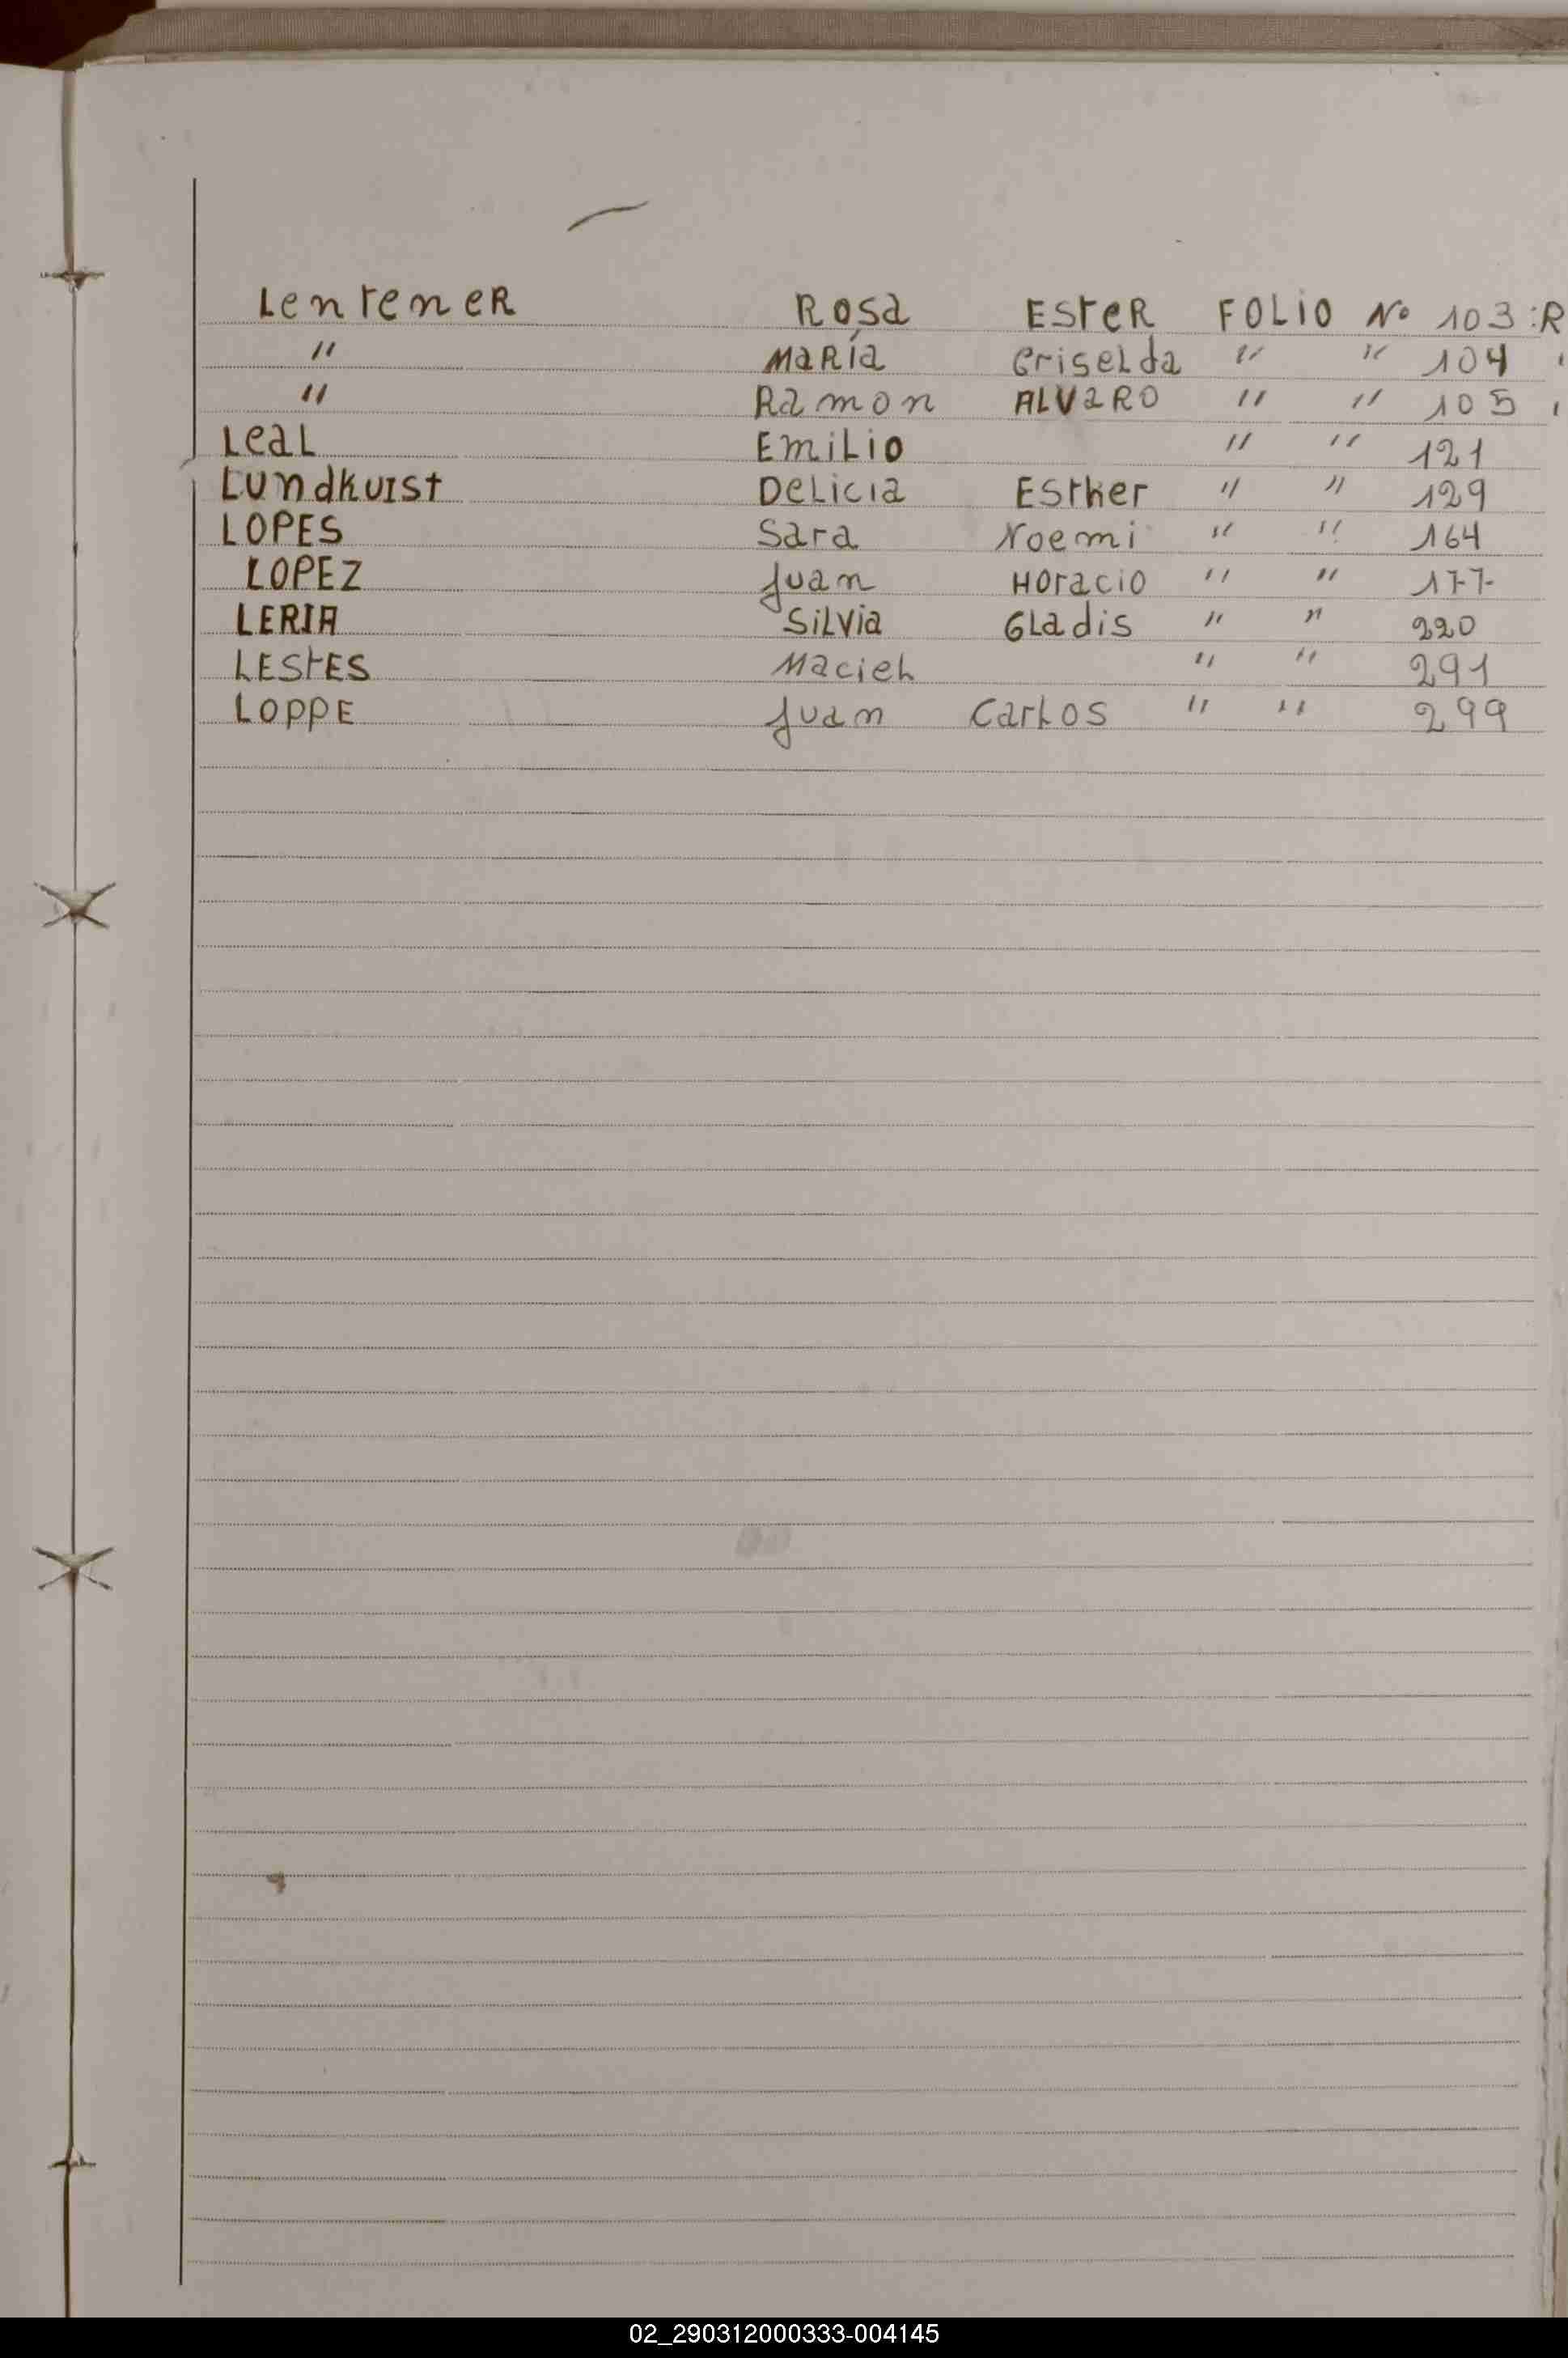 Lentener Rosa Ester FOLIO Nº 103 :R
" María Criselda " " 104 "
" Ramon ALVARO " " 105 "
Leal Emilio " " 121
Lundkuist Delicia Esther " " 129
LOPES Sara Noemi " " 164
LOPEZ Juan Horacio " " 177
LERIA Silvia Gladis " " 220
LEStES Maciel " " 291
LOPPE Juan Carlos " " 299
02_290312000333-004145